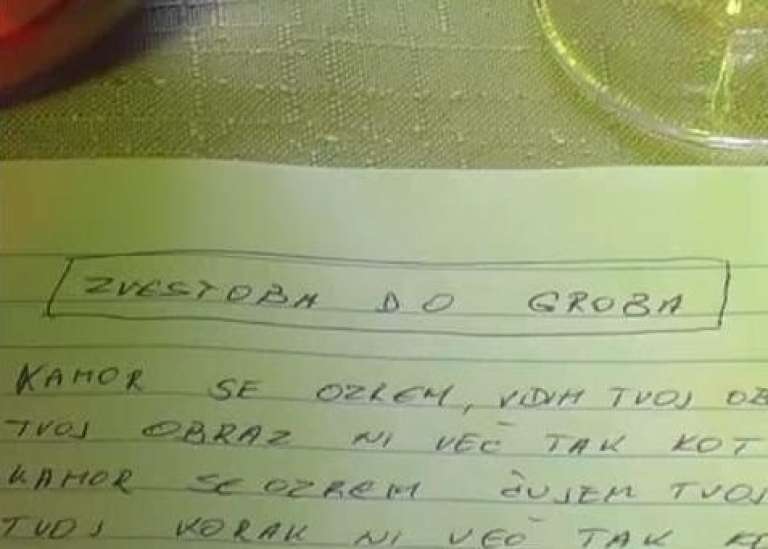 ZVESTOBA DO GROBA
KAMOR SE OZREM, VIDIM TVOJ
TVOJ OBRAZ NI VEČ TAK KOT
KAMOR SE OZREM ČUJEM TVOJ
TVOJ KORAK NI VEČ TAK